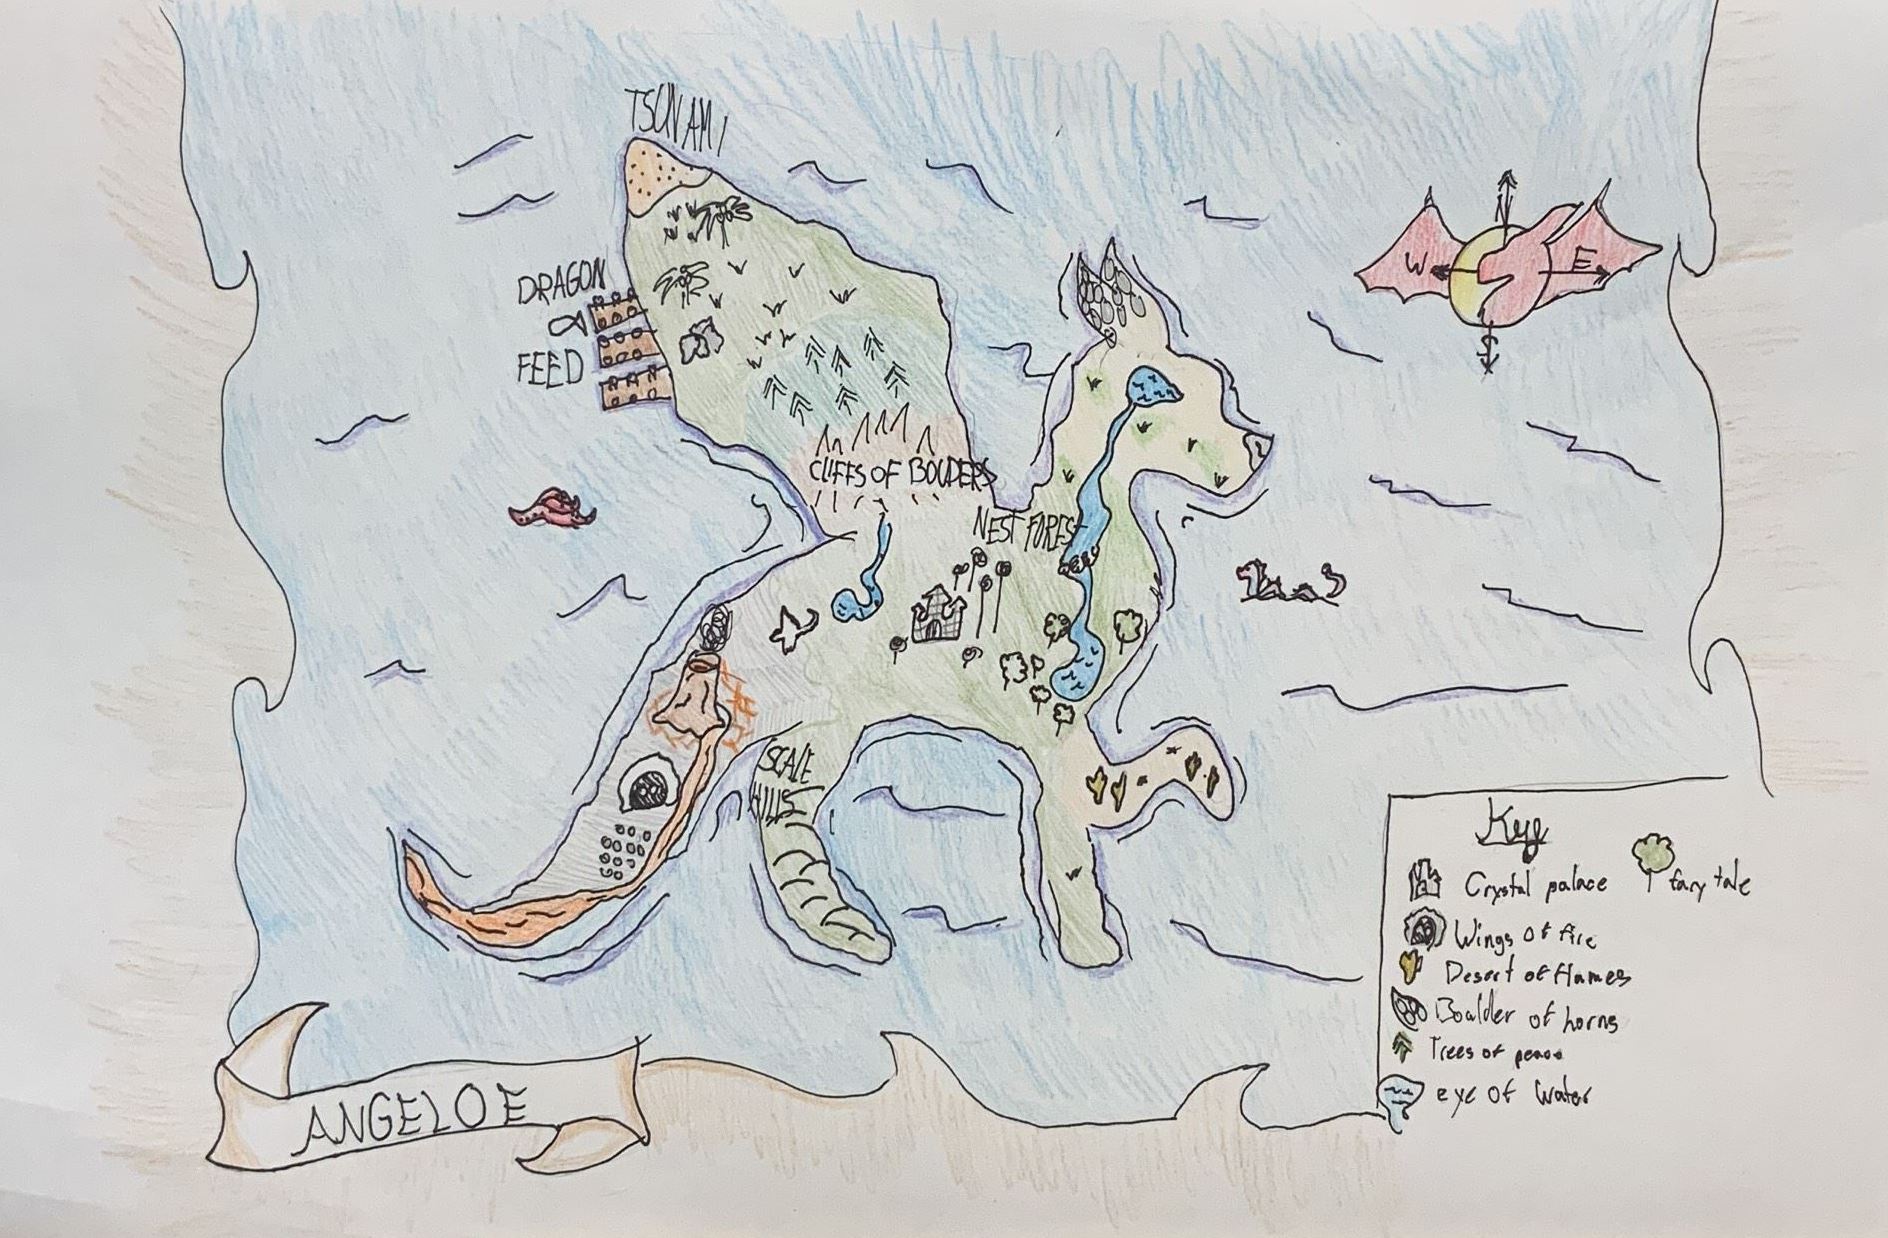 TSUNAMI
DRAGON
FEED
N
W
E
S
CLIFFS OF BOULDERS
NEST FOREST
SCALE
HILLS
Key
Crystal palace
fary tale
Wings of fire
Desert of flames
Boulder of horns
Trees of peace
eye of water
ANGELOE